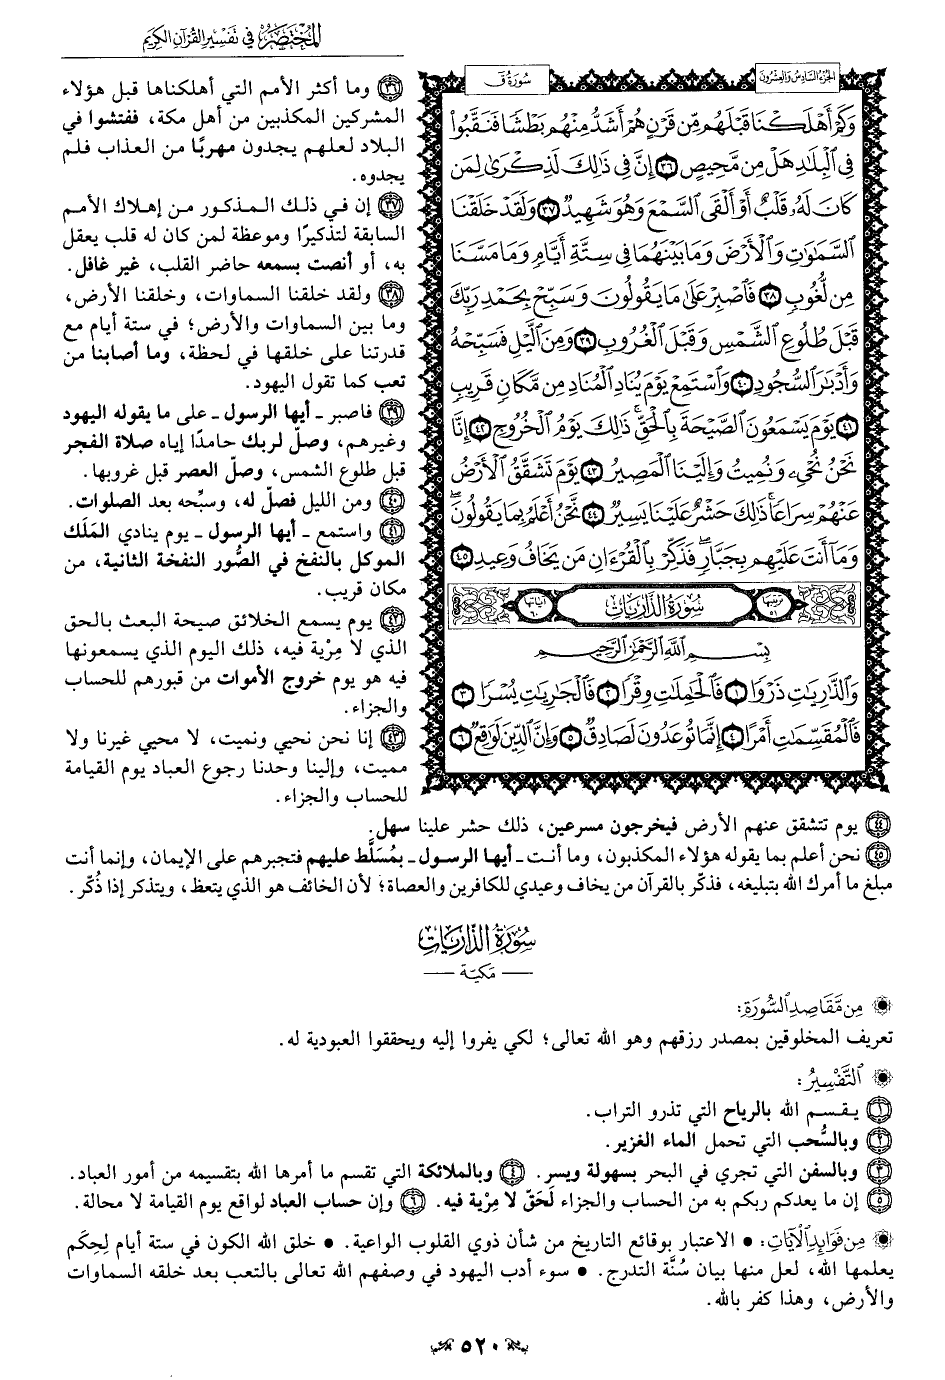 المختصر في تفسير القرآن الكريم
الجزء السادس والعشرون
سورة ق
وَكَمْ أَهْلَكْنَا قَبْلَهُم مِّن قَرْنٍ هُمْ أَشَدُّ مِنْهُم بَطْشًا فَنَقَّبُوا۟
فِى ٱلْبِلَٰدِ هَلْ مِن مَّحِيصٍ ٣٦ إِنَّ فِى ذَٰلِكَ لَذِكْرَىٰ لِمَن
كَانَ لَهُۥ قَلْبٌ أَوْ أَلْقَى ٱلسَّمْعَ وَهُوَ شَهِيدٌ ٣٧ وَلَقَدْ خَلَقْنَا
ٱلسَّمَٰوَٰتِ وَٱلْأَرْضَ وَمَا بَيْنَهُمَا فِى سِتَّةِ أَيَّامٍ وَمَا مَسَّنَا
مِن لُّغُوبٍ ٣٨ فَٱصْبِرْ عَلَىٰ مَا يَقُولُونَ وَسَبِّحْ بِحَمْدِ رَبِّكَ
قَبْلَ طُلُوعِ ٱلشَّمْسِ وَقَبْلَ ٱلْغُرُوبِ ٣٩ وَمِنَ ٱلَّيْلِ فَسَبِّحْهُ
وَأَدْبَٰرَ ٱلسُّجُودِ ٤٠ وَٱسْتَمِعْ يَوْمَ يُنَادِ ٱلْمُنَادِ مِن مَّكَانٍ قَرِيبٍ
٤١ يَوْمَ يَسْمَعُونَ ٱلصَّيْحَةَ بِٱلْحَقِّ ۚ ذَٰلِكَ يَوْمُ ٱلْخُرُوجِ ٤٢ إِنَّا
نَحْنُ نُحْىِۦ وَنُمِيتُ وَإِلَيْنَا ٱلْمَصِيرُ ٤٣ يَوْمَ تَشَقَّقُ ٱلْأَرْضُ
عَنْهُمْ سِرَاعًا ۚ ذَٰلِكَ حَشْرٌ عَلَيْنَا يَسِيرٌ ٤٤ نَّحْنُ أَعْلَمُ بِمَا يَقُولُونَ ۖ
وَمَآ أَنتَ عَلَيْهِم بِجَبَّارٍ ۖ فَذَكِّرْ بِٱلْقُرْءَانِ مَن يَخَافُ وَعِيدِ ٤٥
ترتيبها ٥١ سورة الذاريات آياتها ٦٠
بِسْمِ ٱللَّهِ ٱلرَّحْمَٰنِ ٱلرَّحِيمِ
وَٱلذَّٰرِيَٰتِ ذَرْوًا ١ فَٱلْحَٰمِلَٰتِ وِقْرًا ٢ فَٱلْجَٰرِيَٰتِ يُسْرًا ٣
فَٱلْمُقَسِّمَٰتِ أَمْرًا ٤ إِنَّمَا تُوعَدُونَ لَصَادِقٌ ٥ وَإِنَّ ٱلدِّينَ لَوَٰقِعٌ ٦
٣٦ وما أكثر الأمم التي أهلكناها قبل هؤلاء
المشركين المكذبين من أهل مكة، ففتشوا في
البلاد لعلهم يجدون مهربًا من العذاب فلم
يجدوه.
٣٧ إن في ذلك المذكور من إهلاك الأمم
السابقة لتذكيرًا وموعظة لمن كان له قلب يعقل
به، أو أنصت بسمعه حاضر القلب، غير غافل.
٣٨ ولقد خلقنا السماوات، وخلقنا الأرض،
وما بين السماوات والأرض؛ في ستة أيام مع
قدرتنا على خلقها في لحظة، وما أصابنا من
تعب كما تقول اليهود.
٣٩ فاصبر ـ أيها الرسول ـ على ما يقوله اليهود
وغيرهم، وصلّ لربك حامدًا إياه صلاة الفجر
قبل طلوع الشمس، وصلّ العصر قبل غروبها.
٤٠ ومن الليل فصلّ له، وسبِّحه بعد الصلوات.
٤١ واستمع ـ أيها الرسول ـ يوم ينادي المَلَك
الموكل بالنفخ في الصُّور النفخة الثانية، من
مكان قريب.
٤٢ يوم يسمع الخلائق صيحة البعث بالحق
الذي لا مِرْية فيه، ذلك اليوم الذي يسمعونها
فيه هو يوم خروج الأموات من قبورهم للحساب
والجزاء.
٤٣ إنا نحن نحيي ونميت، لا محيي غيرنا ولا
مميت، وإلينا وحدنا رجوع العباد يوم القيامة
للحساب والجزاء.
٤٤ يوم تتشقق عنهم الأرض فيخرجون مسرعين، ذلك حشر علينا سهل.
٤٥ نحن أعلم بما يقوله هؤلاء المكذبون، وما أنت ـ أيها الرسول ـ بمُسَلَّط عليهم فتجبرهم على الإيمان، وإنما أنت
مبلغ ما أمرك الله بتبليغه، فذكّر بالقرآن من يخاف وعيدي للكافرين والعصاة؛ لأن الخائف هو الذي يتعظ، ويتذكر إذا ذُكّر.
سورة الذاريات
— مكيّة —
من مقاصد السورة:
تعريف المخلوقين بمصدر رزقهم وهو الله تعالى؛ لكي يفروا إليه ويحققوا العبودية له.
التفسير:
١ يقسم الله بالرياح التي تذرو التراب.
٢ وبالسُّحب التي تحمل الماء الغزير.
٣ وبالسفن التي تجري في البحر بسهولة ويسر. ٤ وبالملائكة التي تقسم ما أمرها الله بتقسيمه من أمور العباد.
٥ إن ما يعدكم ربكم به من الحساب والجزاء لَحَقّ لا مِرْية فيه. ٦ وإن حساب العباد لواقع يوم القيامة لا محالة.
من فوائد الآيات: • الاعتبار بوقائع التاريخ من شأن ذوي القلوب الواعية. • خلق الله الكون في ستة أيام لِحِكَم
يعلمها الله، لعل منها بيان سُنَّة التدرج. • سوء أدب اليهود في وصفهم الله تعالى بالتعب بعد خلقه السماوات
والأرض، وهذا كفر بالله.
٥٢٠